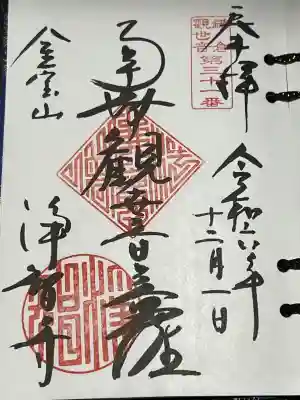 奉拝
鎌倉
觀世音
第三十一番
令和六年
十二月一日
南無觀世音菩薩
金宝山
淨智寺